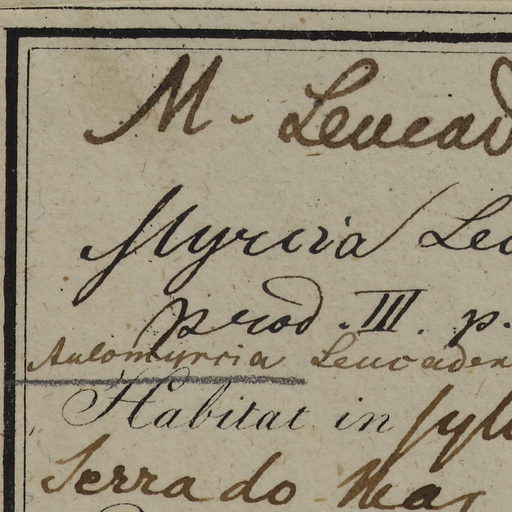 M. Leucad
Myrcia Leu
prod. III. p.
Aulomyrcia Leucaden
Habitat in sylv
Serra do Mar